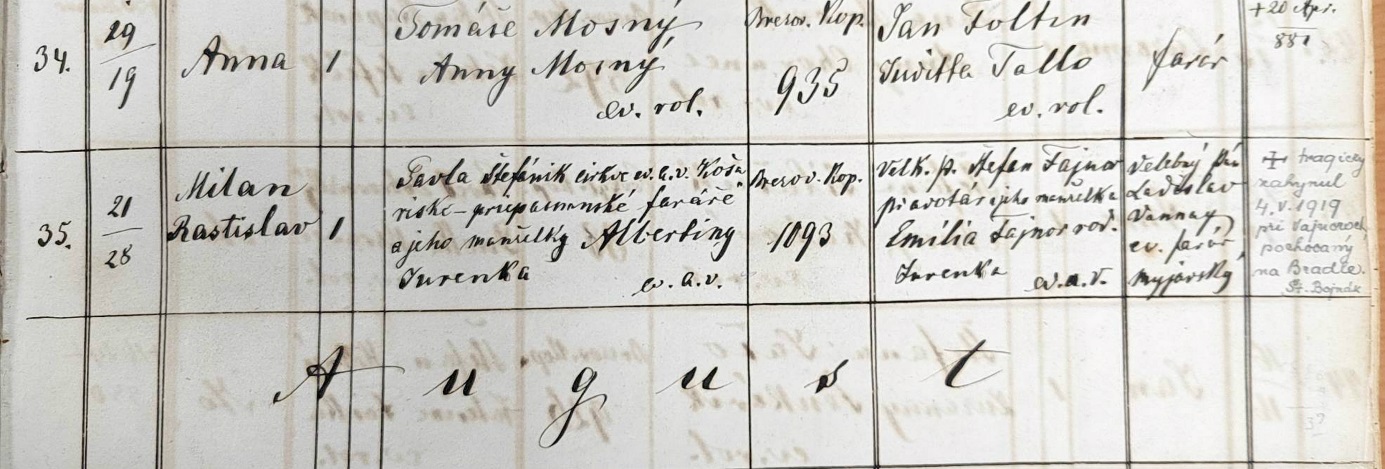 34.
19
19
Anna 1
Tomáše Mosný
Anny Mosný
ev. rol.
Brezov. Kop.
935
Jan Foltin
Juditta Tallo
ev. rol.
farár
+20 Apr.
881
35.
21
28
Milan
Rastislav 1
Pavla Štefánik cirkve ev. a. v. Koša
riské-priepasenské faráře
a jeho manželky Albertiny
Jurenka
ev. a. v.
Brezov. Kop.
1093
Velk. p. Štefan Fajnor
pravotár i jeho manželka
Emília Fajnor rod.
Jurenka
ev. a. v.
Velebný Pán
Ladislav
Vannay
ev. farár
myjavský
+ tragicky
zahynul
4. V. 1919
pri Vajnoroch
pochovaný
na Bradle.
Št. Bojnák
August